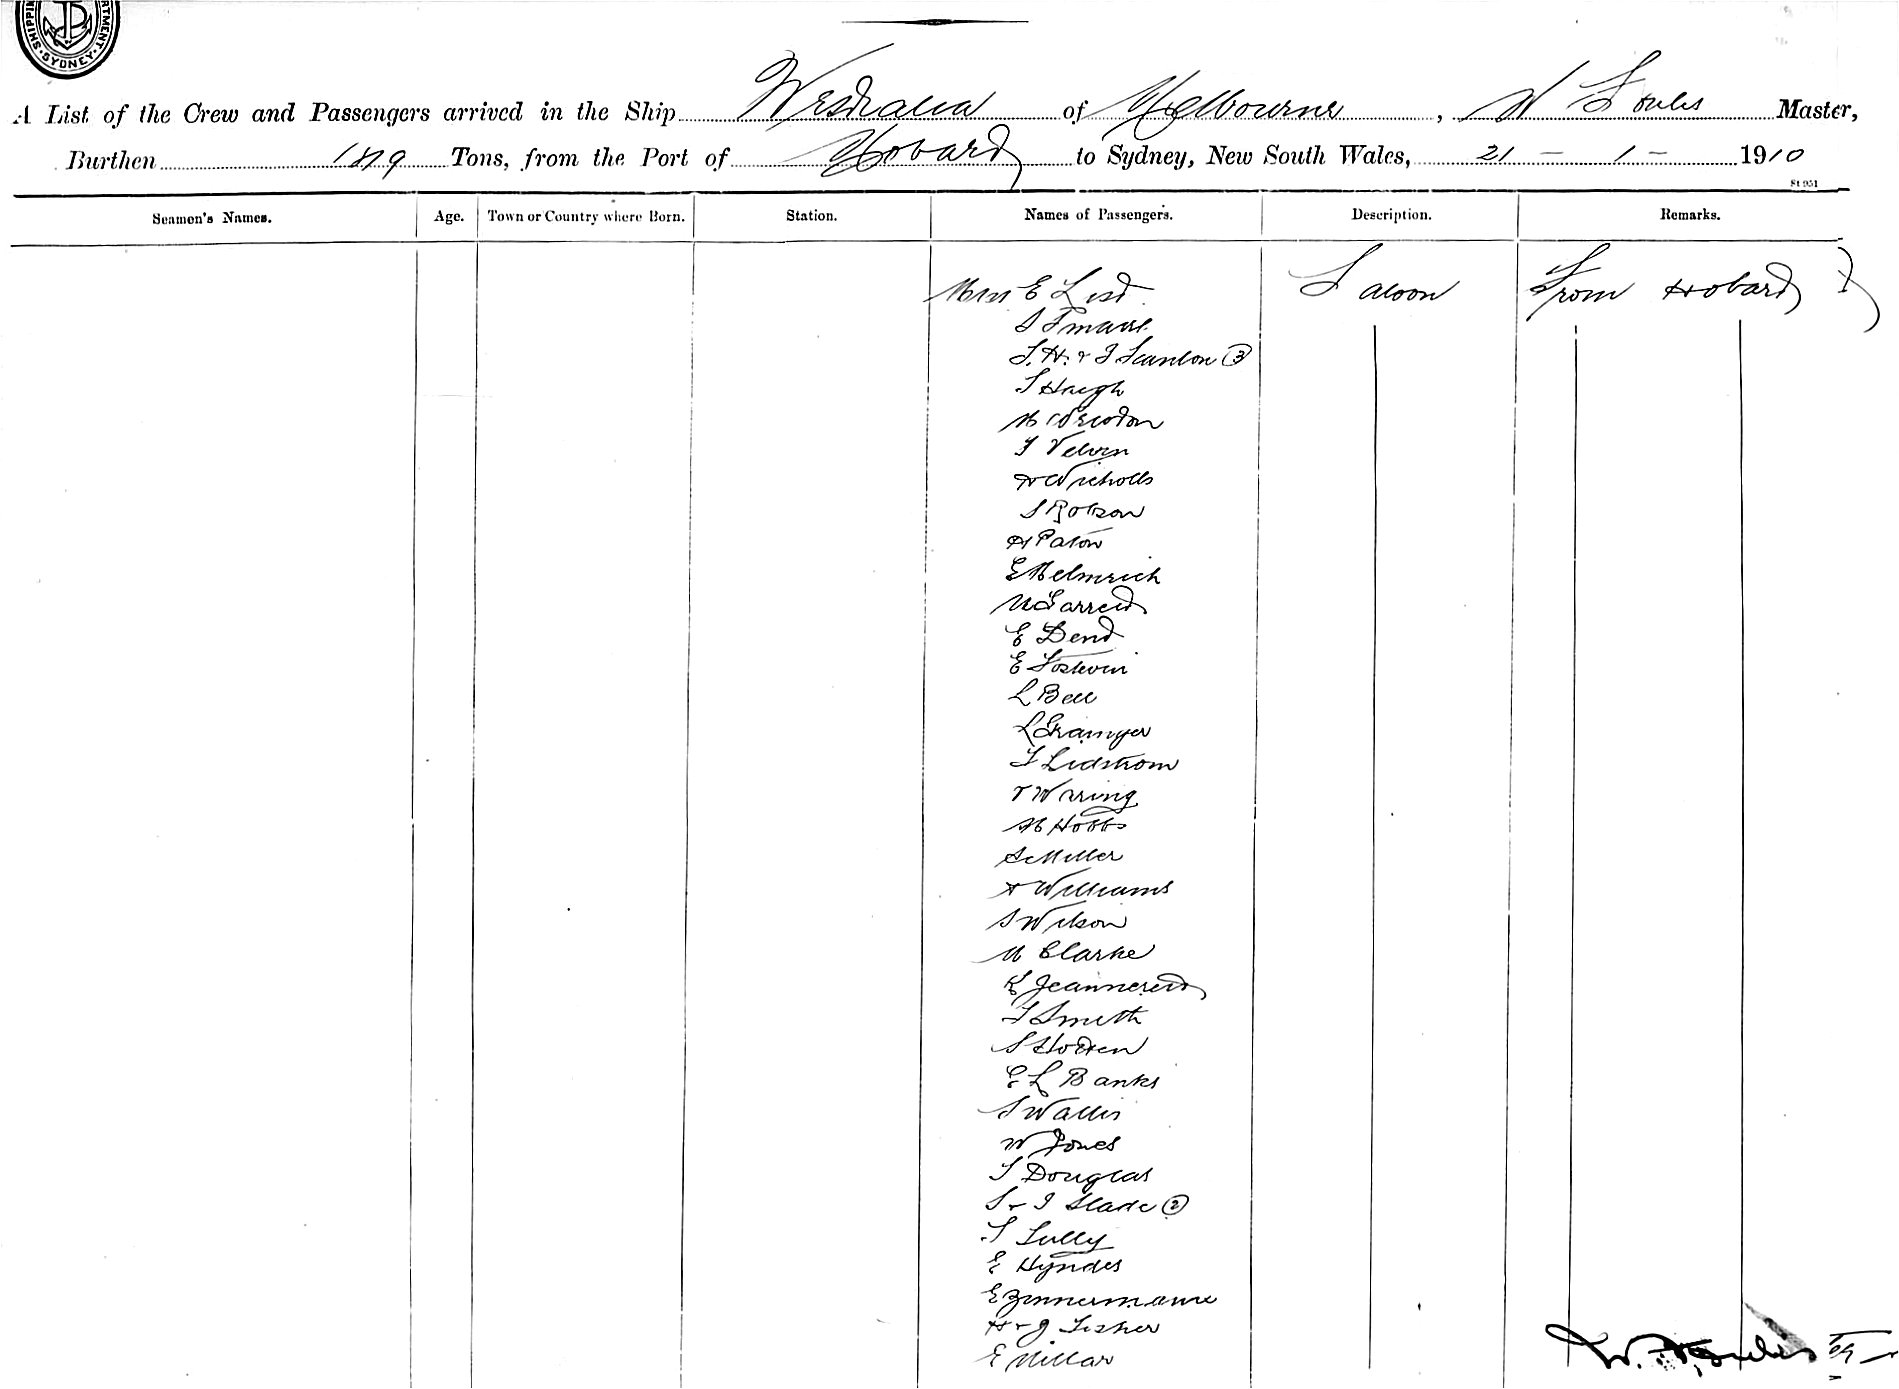 SHIPPIN RTMENT SYDNEY
A List of the Crew and Passengers arrived in the Ship Westralia of Melbourne, W Master,
Burthen 1819 Tons, from the Port of Hobart to Sydney, New South Wales, 21 - 1 - 1910
St 951
Seamen's Names. Age. Town or Country where Born. Station. Names of Passengers. Description. Remarks.
E List Saloon From Hobart
S
S. H. & J Scanlon 3
S Haigh
M
T Velvin
A Nicholls
S Robson
A Paton
E Helmrich
M Garrett
E Dent
E
L Bell
L Grainger
T Lidstrom
V Waring
M Hobbs
S Miller
A Williams
S Wilson
M Clarke
K Jeanneret
T Smith
S
E L Banks
S Wallis
W Jones
T Douglas
S & I Slade 2
S Tully
E Hyndes
E
H & J Fisher
E Millar
W.